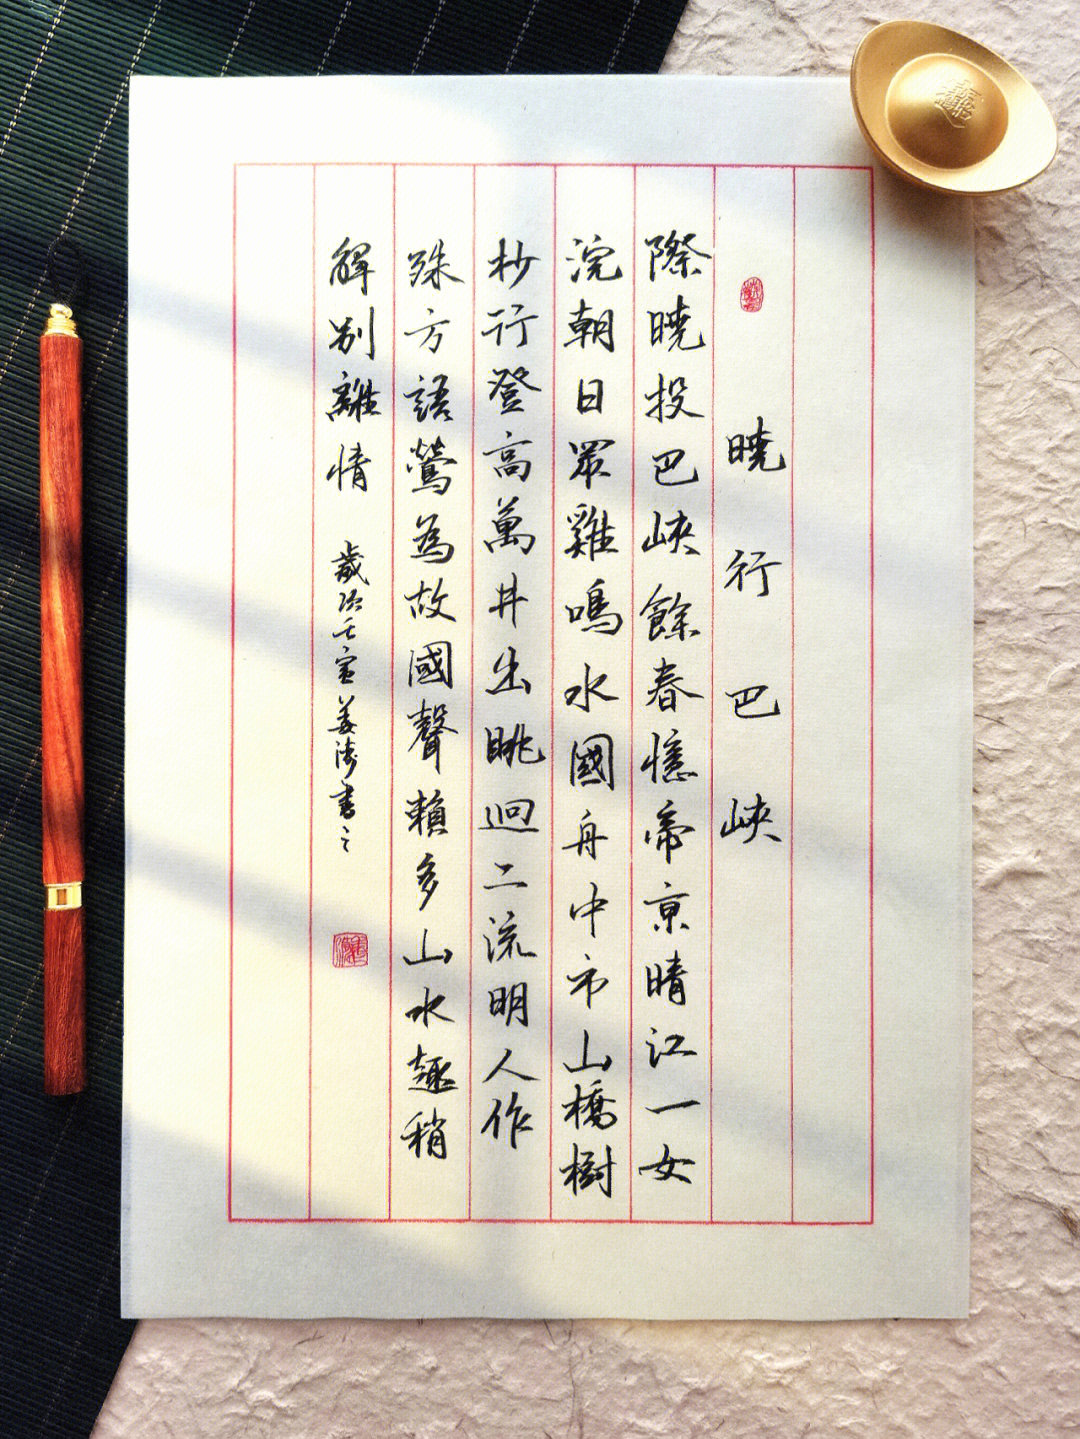 曉行巴峽
際曉投巴峽餘春憶帝京晴江一女
浣朝日眾雞鳴水國舟中市山橋樹
杪行登高萬井出眺迥二流明人作
殊方語鶯為故國聲賴多山水趣稍
解別離情
歲次壬寅姜濤書之